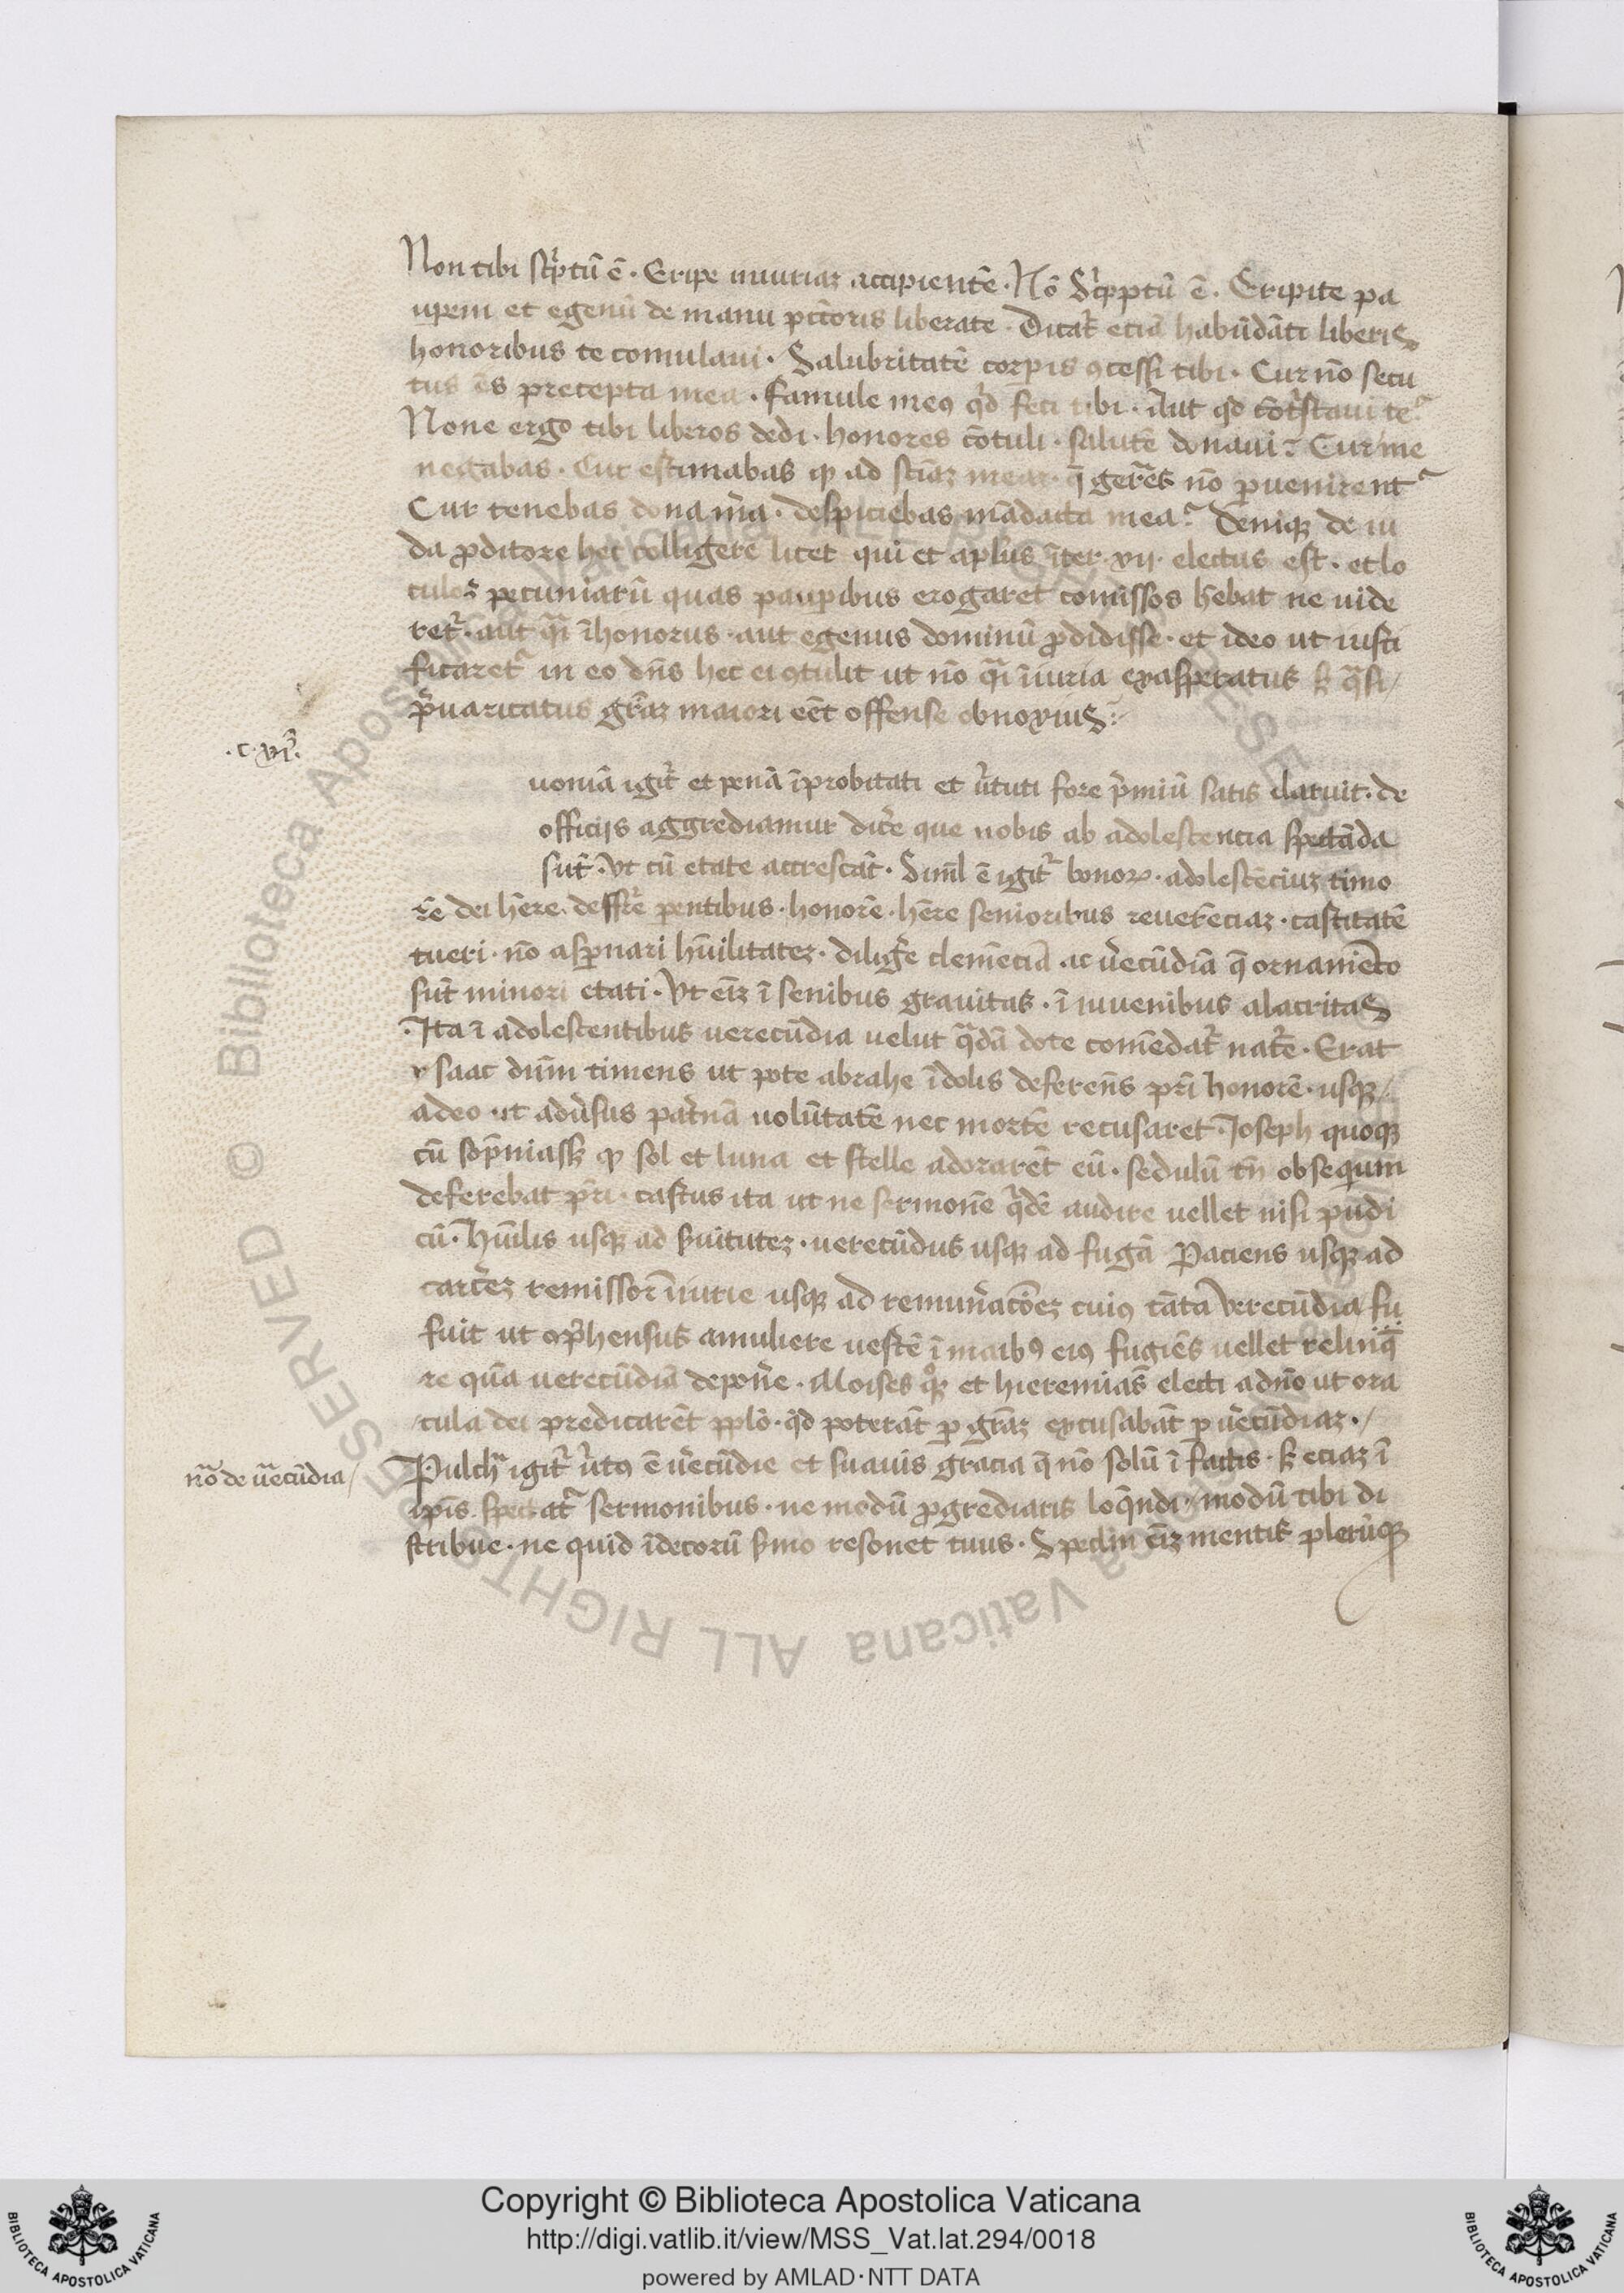 Non tibi scp̃tũ ẽ · Eripe iniuriaz accipientẽ · Nõ Scʼpptũ ẽ · Eripite pa
upem et egenũ de manu pctõris liberate · Dicat᷒ eciã habũdãti liberis
honoribus te comulaui · Salubritatẽ corpis ꝯcessi tibi · Cur nõ secu
tus es precepta mea · Famule meꝰ qʼd feci tibi · Aut qʼd cõtʼstaui te?
None ergo tibi liberos dedi · honores cõtuli · salutẽ donaui? Cur me
negabas · Cur estimabas ꝙ ad sciãz meaz q̃ gereʳs nõ ꝑuenirent?
Cur tenebas dona mʼa · despiciebas mãdata mea? Deniqꝫ de iu
da ꝓditore hec colligere licet qui et aplʼus ĩter · xij · electus est · et lo
culos pecuniarũ quas paupibus erogaret comissos hẽbat ne uide
ret᷒ · aut qʼi ĩhonorus · aut egenus dominũ ꝓdidisse · et ideo ut iusti
ficaret᷒ in eo dñs hec ei ꝯtulit ut nõ qʼi ĩiuria exasperatus sꝫ qʼsi
p̃uaricatus grãz maiori eẽt offense obnoxius:
· c · vi᷒ ·
uoniã igit᷒ et penã ĩprobitati et uʼtuti fore p̃miũ satis claruit · de
officijs aggrediamur dicʼe que nobis ab adolescencia spectãda
sũt · Ut cũ etate accrescãt · Siml̃ ẽ igit᷒ bonoꝝ · adolescẽciuz timo
rẽ dei hẽre · deffrʼe pentibus · honorẽ · hẽre senioribus reuerẽciaz · castitatẽ
tueri · nõ aspnari hũilitatez · diligʼe clemẽciã ac uʼecũdiã q̃ ornamẽto
sũt minori etati · Ut eĩz ĩ senibus grauitas · ĩ iuuenibus alacritas
Ita ĩ adolescentibus uerecũdia uelut qʼdã dote comẽdat᷒ natʼe · Erat
ysaac dũm timens ut pote abrahe ĩdolis deferens pr̃i honorẽ · usqꝫ
adeo ut aduʼsus patʼnã uolũtatẽ nec mortẽ recusaret · Joseph quoqꝫ
cũ sop̃niasꝫ ꝙ sol et luna et stelle adorarẽt eũ · sedulũ tñ obsequium
deferebat pr̃i · castus ita ut ne sermonẽ qʼdẽ audire uellet nisi pudi
cũ · Hũilis usqꝫ ad sʼuitutez · uerecũdus usqꝫ ad fugã Paciens usqꝫ ad
carcʼez remissor ĩiurie usqꝫ ad remunʼacõez cuiꝰ tãta uerecũdia fu
fuit ut ꝯp̃hensus amuliere uestẽ ĩ maibꝰ eiꝰ fugiẽs uellet relinq̃
re qũa uerecũdiã deponʼe · Moises qꝫ et hieremias electi adño ut ora
cula dei predicarẽt pplo · qʼd poterãt ꝑ grãz excusabãt ꝑ uʼecũdiaz ·
nõ de uʼecũdia
Pulchʼ igit᷒ uʼtꝰ ẽ uʼecũdie et suauis gracia q̃ nõ solũ ĩ factis · sꝫ eciaz ĩ
ipis spectat᷒ sermonibus · ne modũ ꝓgrediaris loq̃ndi · modũ tibi di
stribue · ne quid ĩdecorũ sʼmo resonet tuus · Speclm eĩz mentis pleruqꝫ
Copyright © Biblioteca Apostolica Vaticana
http://digi.vatlib.it/view/MSS_Vat.lat.294/0018
powered by AMLAD·NTT DATA